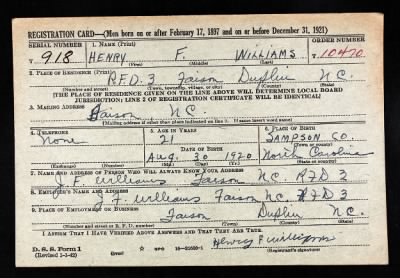 REGISTRATION CARD—(Men born on or after February 17, 1897 and on or before December 31, 1921)
SERIAL NUMBER 1. NAME (Print) ORDER NUMBER
T 918 HENRY F. WILLIAMS T 10470
(First) (Middle) (Last)
2. PLACE OF RESIDENCE (Print)
R.F.D. 3 Faison Duplin N.C.
(Number and street) (Town, township, village, or city) (County) (State)
[THE PLACE OF RESIDENCE GIVEN ON THE LINE ABOVE WILL DETERMINE LOCAL BOARD
JURISDICTION; LINE 2 OF REGISTRATION CERTIFICATE WILL BE IDENTICAL]
3. MAILING ADDRESS
Faison, N.C.
[Mailing address if other than place indicated on line 2. If same insert word same]
4. TELEPHONE 5. AGE IN YEARS 6. PLACE OF BIRTH
None 21 SAMPSON Co.
DATE OF BIRTH (Town or county)
Aug. 30 1920 North Carolina
(Exchange) (Number) (Mo.) (Day) (Yr.) (State or country)
7. NAME AND ADDRESS OF PERSON WHO WILL ALWAYS KNOW YOUR ADDRESS
J. F. Williams Faison N.C. RFD 3
8. EMPLOYER'S NAME AND ADDRESS
J. F. Williams Faison N.C. RFD 3
9. PLACE OF EMPLOYMENT OR BUSINESS
Faison Duplin N.C.
(Number and street or R. F. D. number) (Town) (County) (State)
I AFFIRM THAT I HAVE VERIFIED ABOVE ANSWERS AND THAT THEY ARE TRUE.
D. S. S. Form 1
(Revised 1-1-42) (over) GPO 16-21630-1 Henry F Williams